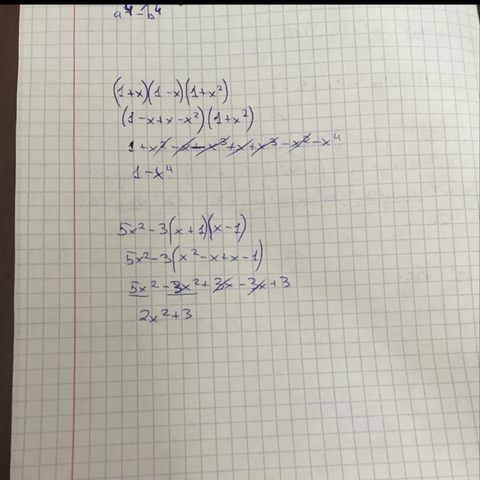 a⁴-b⁴
(1+x)(1-x)(1+x²)
(1-x+x-x²)(1+x²)
1+x²-x-x³+x+x³-x²-x⁴
1-x⁴
5x²-3(x+1)(x-1)
5x²-3(x²-x+x-1)
5x²-3x²+3x-3x+3
2x²+3